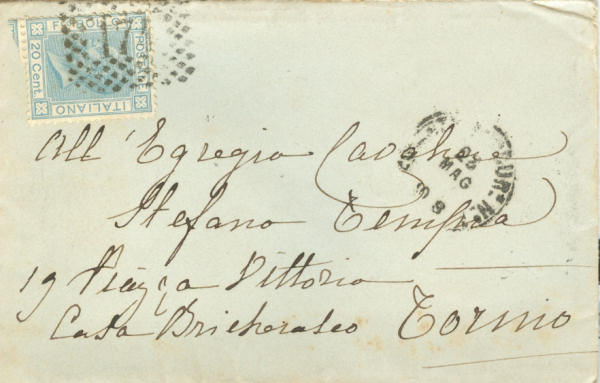 FRANCOBOLLO
POSTALE
20 Cent.
ITALIANO
17
All' Egregio Cavaliere
MAG
Stefano Tempia
19 Piazza Vittorio
Casa Bricherasio Torino